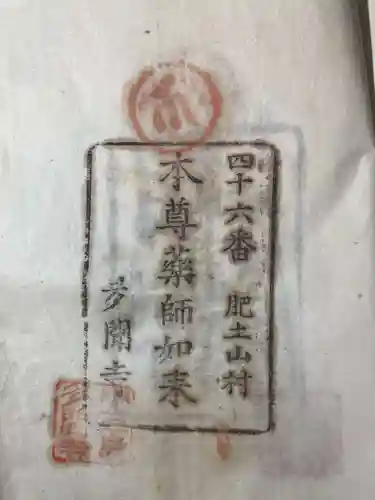 四十六番 肥土山村
本尊薬師如来
多聞寺